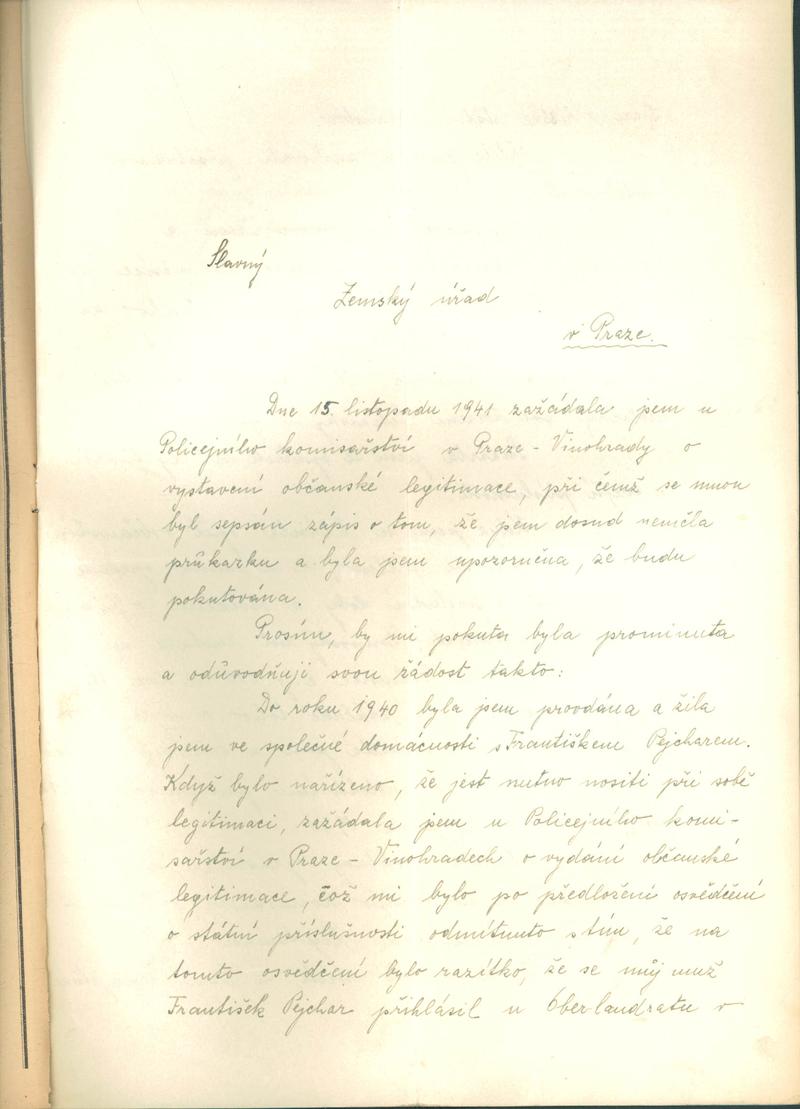 Slavný
Zemský úřad
v Praze.
Dne 15. listopadu 1941 zažádala jsem u
Policejního komisařství v Praze - Vinohrady o
vystavení občanské legitimace, při čemž se mnou
byl sepsán zápis o tom, že jsem dosud neměla
průkazku a byla jsem upozorněna, že budu
pokutována.
Prosím, by mi pokuta byla prominuta
a odůvodňuji svou žádost takto:
Do roku 1940 byla jsem provdána a žila
jsem ve společné domácnosti s Františkem Pejcharem.
Když bylo nařízeno, že jest nutno nositi při sobě
legitimaci, zažádala jsem u Policejního komi-
sařství v Praze - Vinohradech o vydání občanské
legitimace, což mi bylo po předložení osvědčení
o státní příslušnosti odmítnuto s tím, že na
tomto osvědčení bylo razítko, že se můj muž
František Pejchar přihlásil u Oberlandratu v